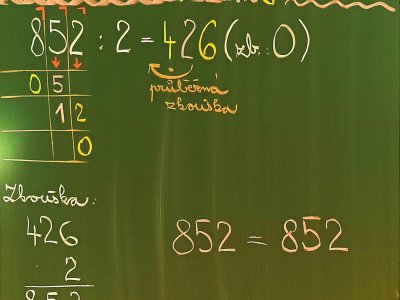 852 : 2 = 426 (zb.: 0)
05
průběžná
12
zkouška
0
Zkouška:
426
. 2
852 = 852
852